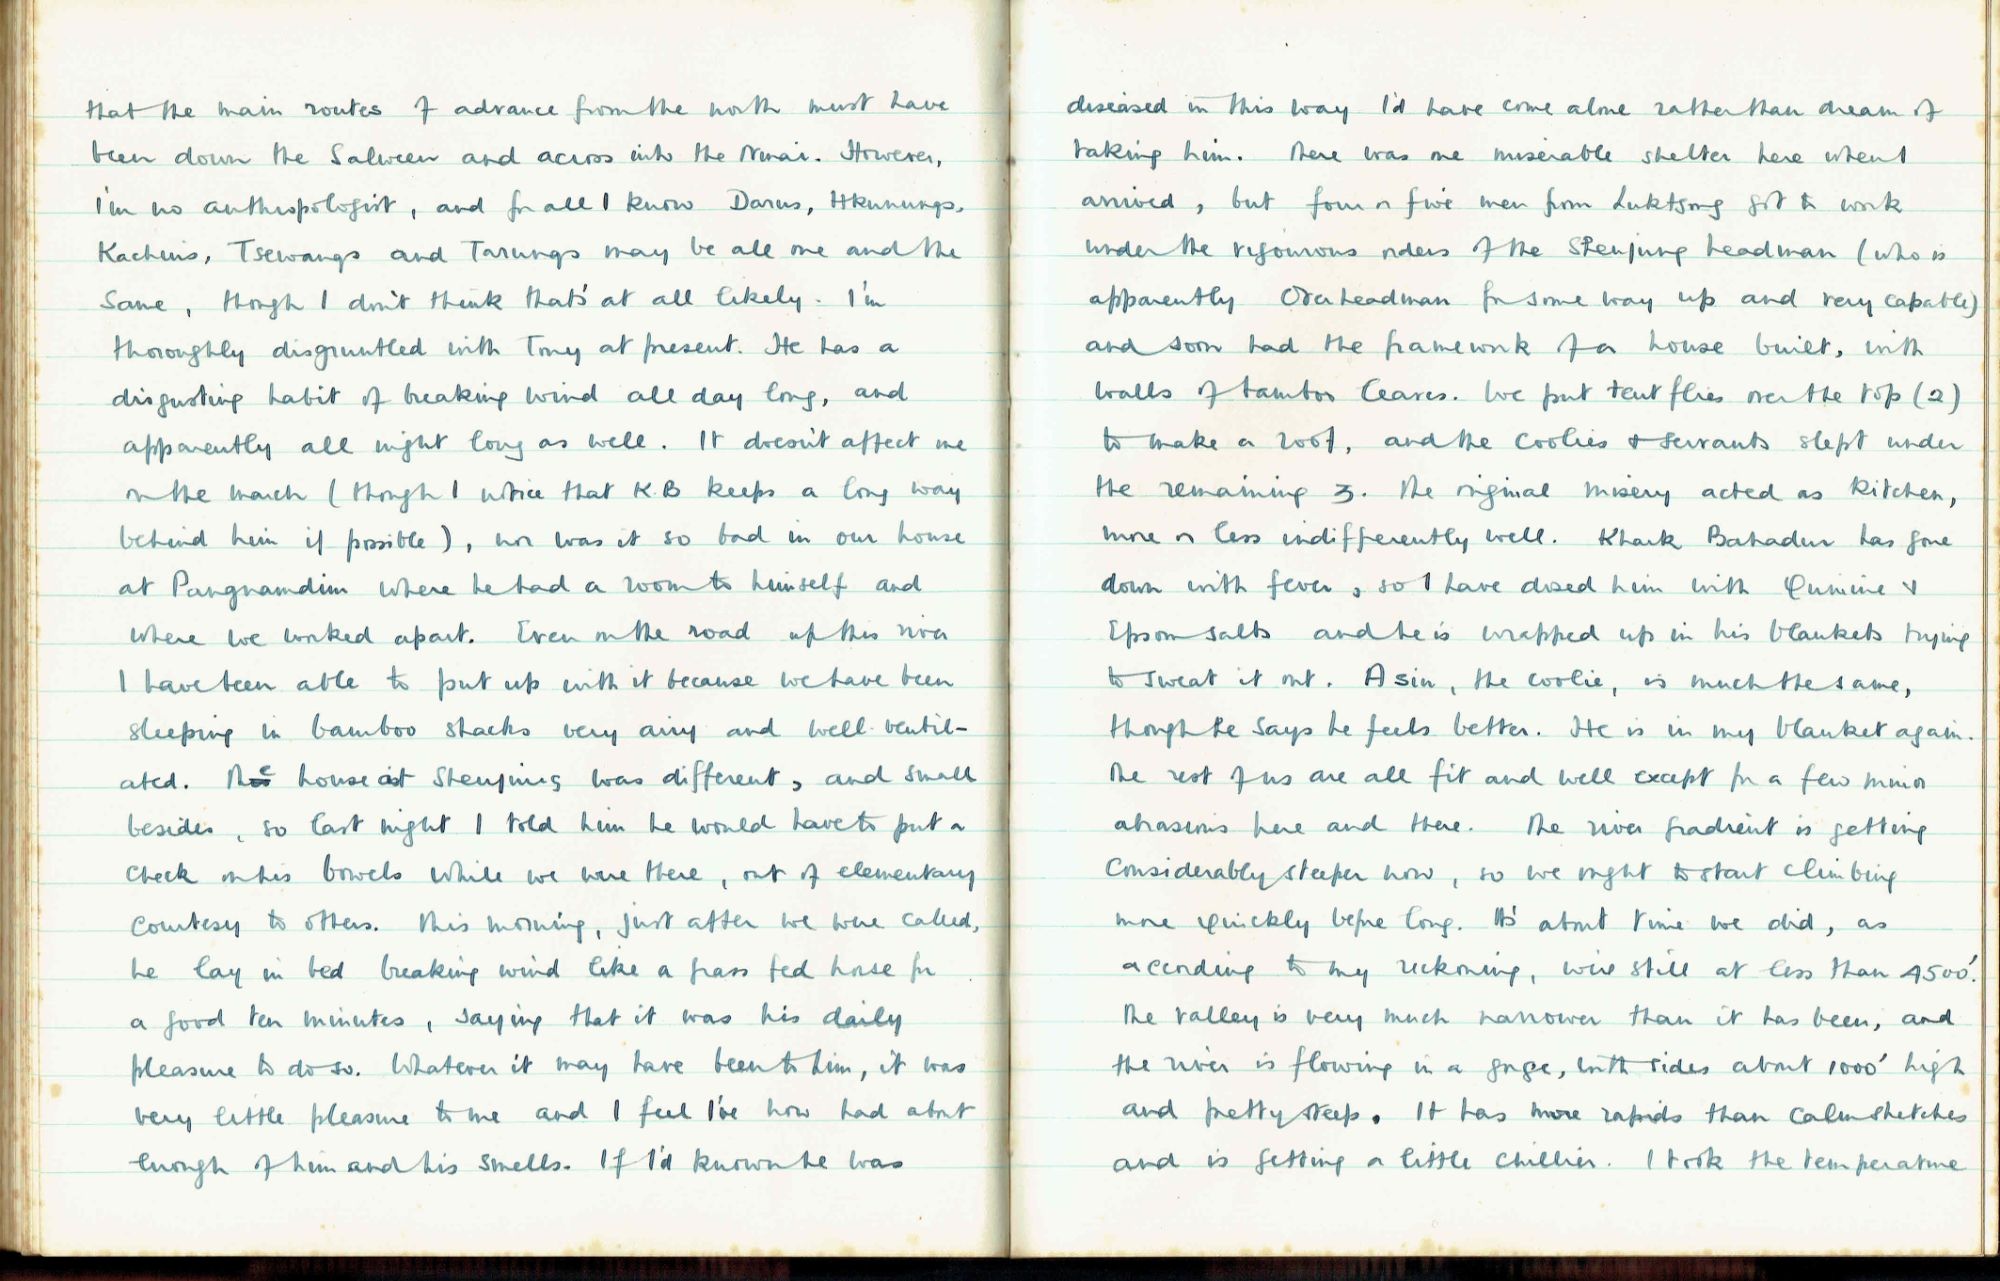 that the main routes of advance from the north must have
been down the Salween and across into the Nmai. However,
I'm no anthropologist, and for all I know Darus, Hkunungs,
Kachins, Tsewangs and Tarungs may be all one and the
same, though I don't think that's at all likely. I'm
thoroughly disgruntled with Tony at present. He has a
disgusting habit of breaking wind all day long, and
apparently all night long as well. It doesn't affect me
on the march (though I notice that K.B keeps a long way
behind him if possible), nor was it so bad in our house
at Pangnamdim where he had a room to himself and
where we worked apart. Even on the road up this river
I have been able to put up with it because we have been
sleeping in bamboo shacks very airy and well-ventil-
ated. The house at Stenjung was different, and small
besides, so last night I told him he would have to put a
check on his bowels while we were there, out of elementary
courtesy to others. This morning, just after we were called,
he lay in bed breaking wind like a grass fed horse for
a good ten minutes, saying that it was his daily
pleasure to do so. Whatever it may have been to him, it was
very little pleasure to me and I feel I've now had about
enough of him and his smells. If I'd known he was
diseased in this way I'd have come alone rather than dream of
taking him. There was one miserable shelter here when I
arrived, but four or five men from Luktsong got to work
under the rigourous orders of the Stenjung headman (who is
apparently Overheadman for some way up and very capable)
and soon had the framework of a house built, with
walls of bamboo leaves. We put tent flies over the top (2)
to make a roof, and the coolies & servants slept under
the remaining 3. The original misery acted as kitchen,
more or less indifferently well. Khark Bahadur has gone
down with fever, so I have dosed him with Quinine &
Epsom salts and he is wrapped up in his blankets trying
to sweat it out. Asin, the coolie, is much the same,
though he says he feels better. He is in my blanket again.
The rest of us are all fit and well except for a few minor
abrasions here and there. The river gradient is getting
considerably steeper now, so we ought to start climbing
more quickly before long. It's about time we did, as
according to my reckoning, we're still at less than 4500'.
The valley is very much narrower than it has been, and
the river is flowing in a gorge, with sides about 1000' high
and pretty steep. It has more rapids than calm stretches
and is getting a little chillier. I took the temperature